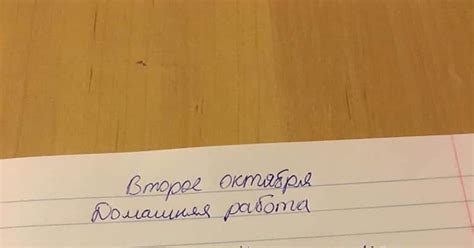 Второе октября
Домашняя работа